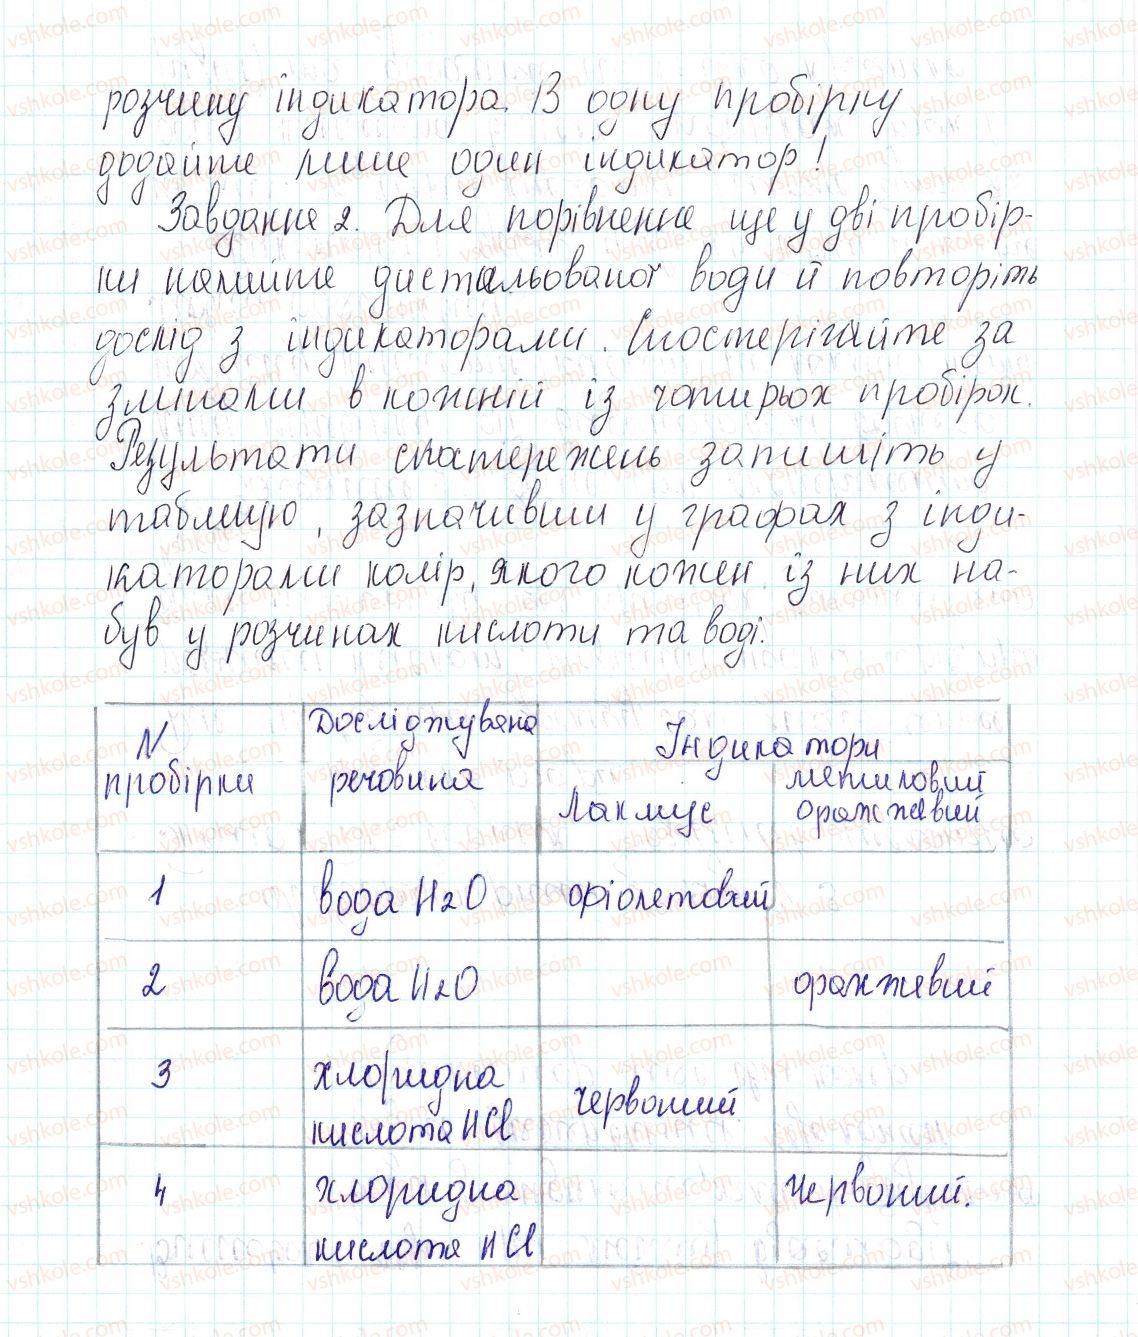 розчину індикатора. В одну пробірку
додайте лише один індикатор!
Завдання 2. Для порівняння ще у дві пробір-
ки налийте дистильованої води й повторіть
дослід з індикаторами. Спостерігайте за
змінами в кожній із чотирьох пробірок.
Результати спостережень запишіть у
таблицю, зазначивши у графах з інди-
каторами колір, якого кожен із них на-
був у розчинах кислоти та воді.
N пробірки
Досліджувана речовина
Індикатори
Лакмус
метиловий оранжевий
1 вода H2O фіолетовий
2 вода H2O оранжевий
3 хлоридна кислота HCl червоний
4 хлоридна кислота HCl червоний.